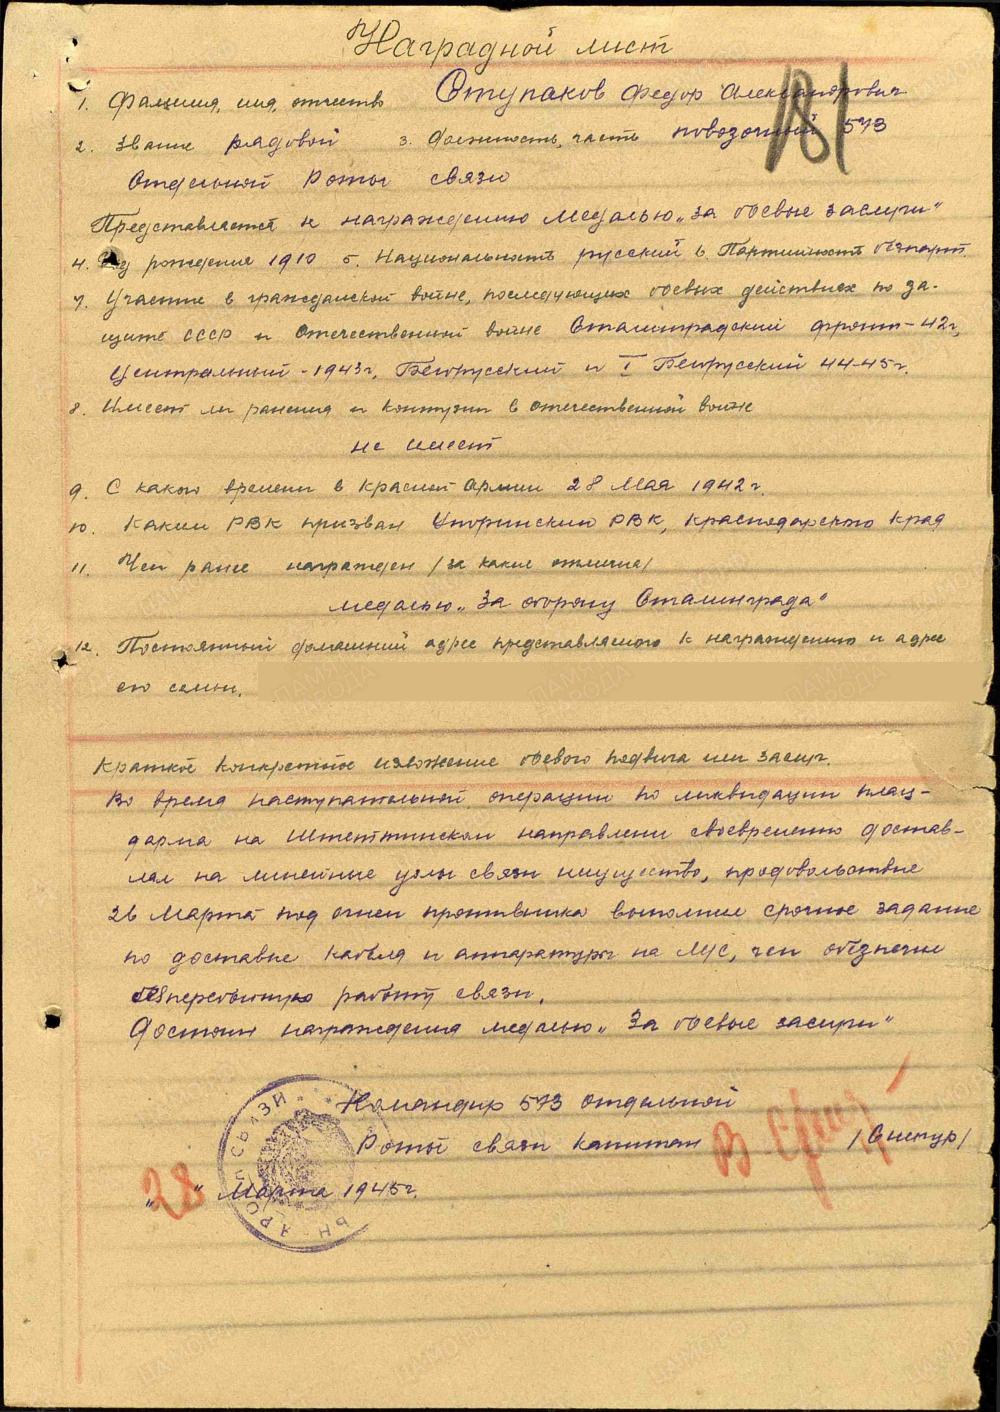 Наградной лист
181
1. Фамилия, имя, отчество Ступаков Федор Александрович
2. Звание рядовой 3. Должность, часть повозочный 573
Отдельной Роты связи
Представляется к награждению медалью „за боевые заслуги"
4. Год рождения 1910 5. Национальность русский 6. Партийность беспарт.
7. Участие в гражданской войне, последующих боевых действиях по за-
щите СССР и отечественной войне Сталинградский фронт-42г,
Центральный-1943г, Белорусский и I Белорусский 44-45г.
8. Имеет ли ранения и контузии в отечественной войне
не имеет
9. С какого времени в красной армии 28 Мая 1942г.
10. Каким РВК призван РВК, Краснодарского Края
11. Чем ранее награжден /за какие отличия/
медалью „За оборону Сталинграда"
12. Постоянный домашний адрес представляемого к награждению и адрес
его семьи.
Краткое конкретное изложение боевого подвига или заслуг.
Во время наступательной операции по ликвидации плац-
дарма на Штеттинском направлени своевременно достав-
лял на линейные узлы связи имущество, продовольствие
26 Марта под огнем противника выполнил срочное задание
по доставке кабеля и аппаратуры на М/С, чем обеспечил
бесперебойную работу связи.
Достоин награждения медалью „За боевые заслуги"
Командир 573 отдельной
Роты связи капитан /Снегур/
„28" Марта 1945г.